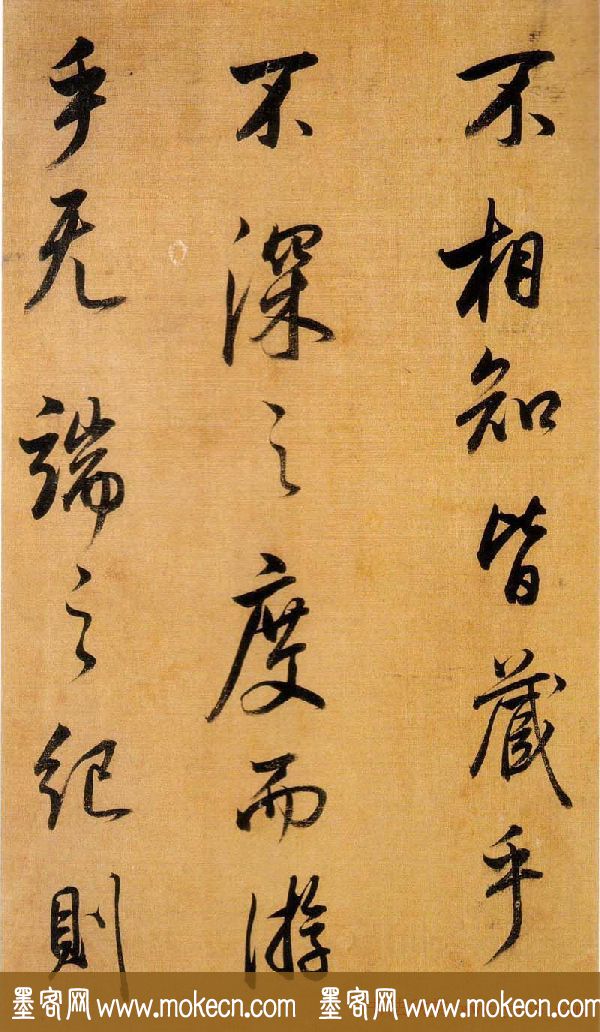 不相知皆藏乎
不深之度而游
乎无端之纪则
墨客网 www.mokecn.com 墨客网 www.mokecn.com